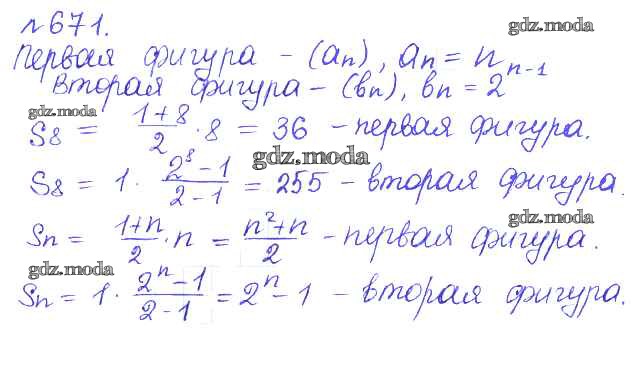 №671. gdz.moda
Первая фигура - (an), an = n
Вторая фигура - (bn), bn = 2^(n-1)
gdz.moda
S8 = (1+8)/2 · 8 = 36 - первая фигура.
gdz.moda
S8 = 1 · (2^8 - 1)/(2 - 1) = 255 - вторая фигура.
gdz.moda
Sn = (1+n)/2 · n = (n²+n)/2 - первая фигура.
gdz.moda
Sn = 1 · (2^n - 1)/(2 - 1) = 2^n - 1 - вторая фигура.